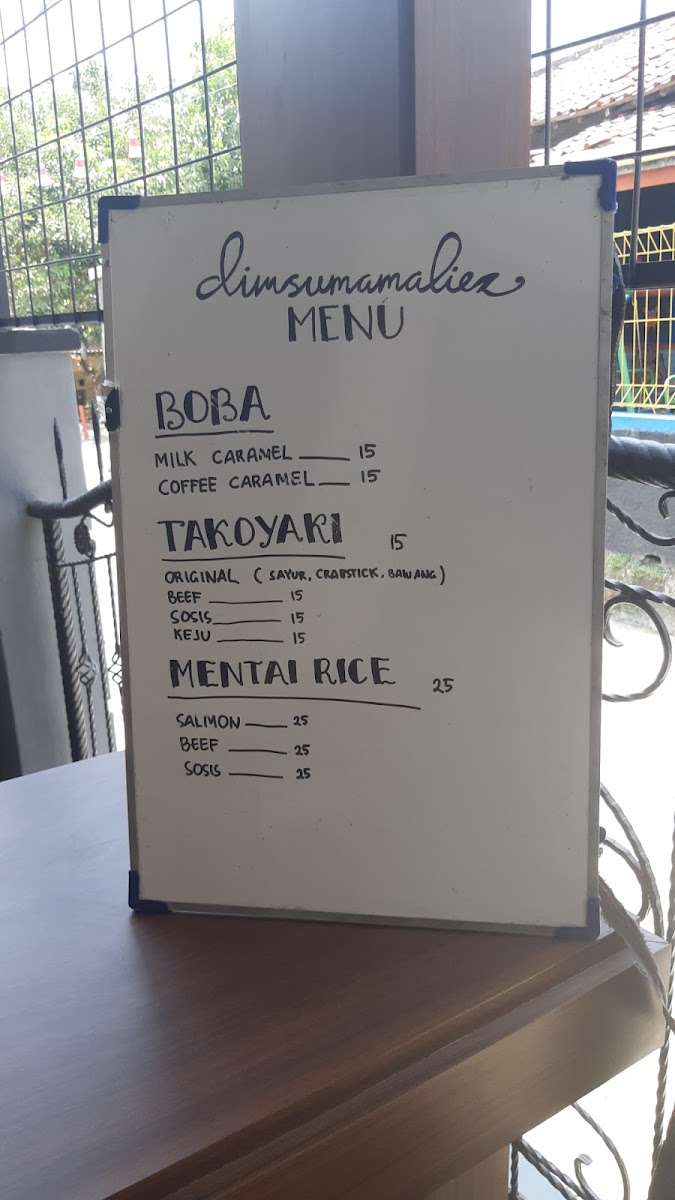 dimsumamaliez
MENU
BOBA
MILK CARAMEL 15
COFFEE CARAMEL 15
TAKOYAKI 15
ORIGINAL (SAYUR, CRABSTICK, BAWANG)
BEEF 15
SOSIS 15
KEJU 15
MENTAI RICE 25
SALMON 25
BEEF 25
SOSIS 25